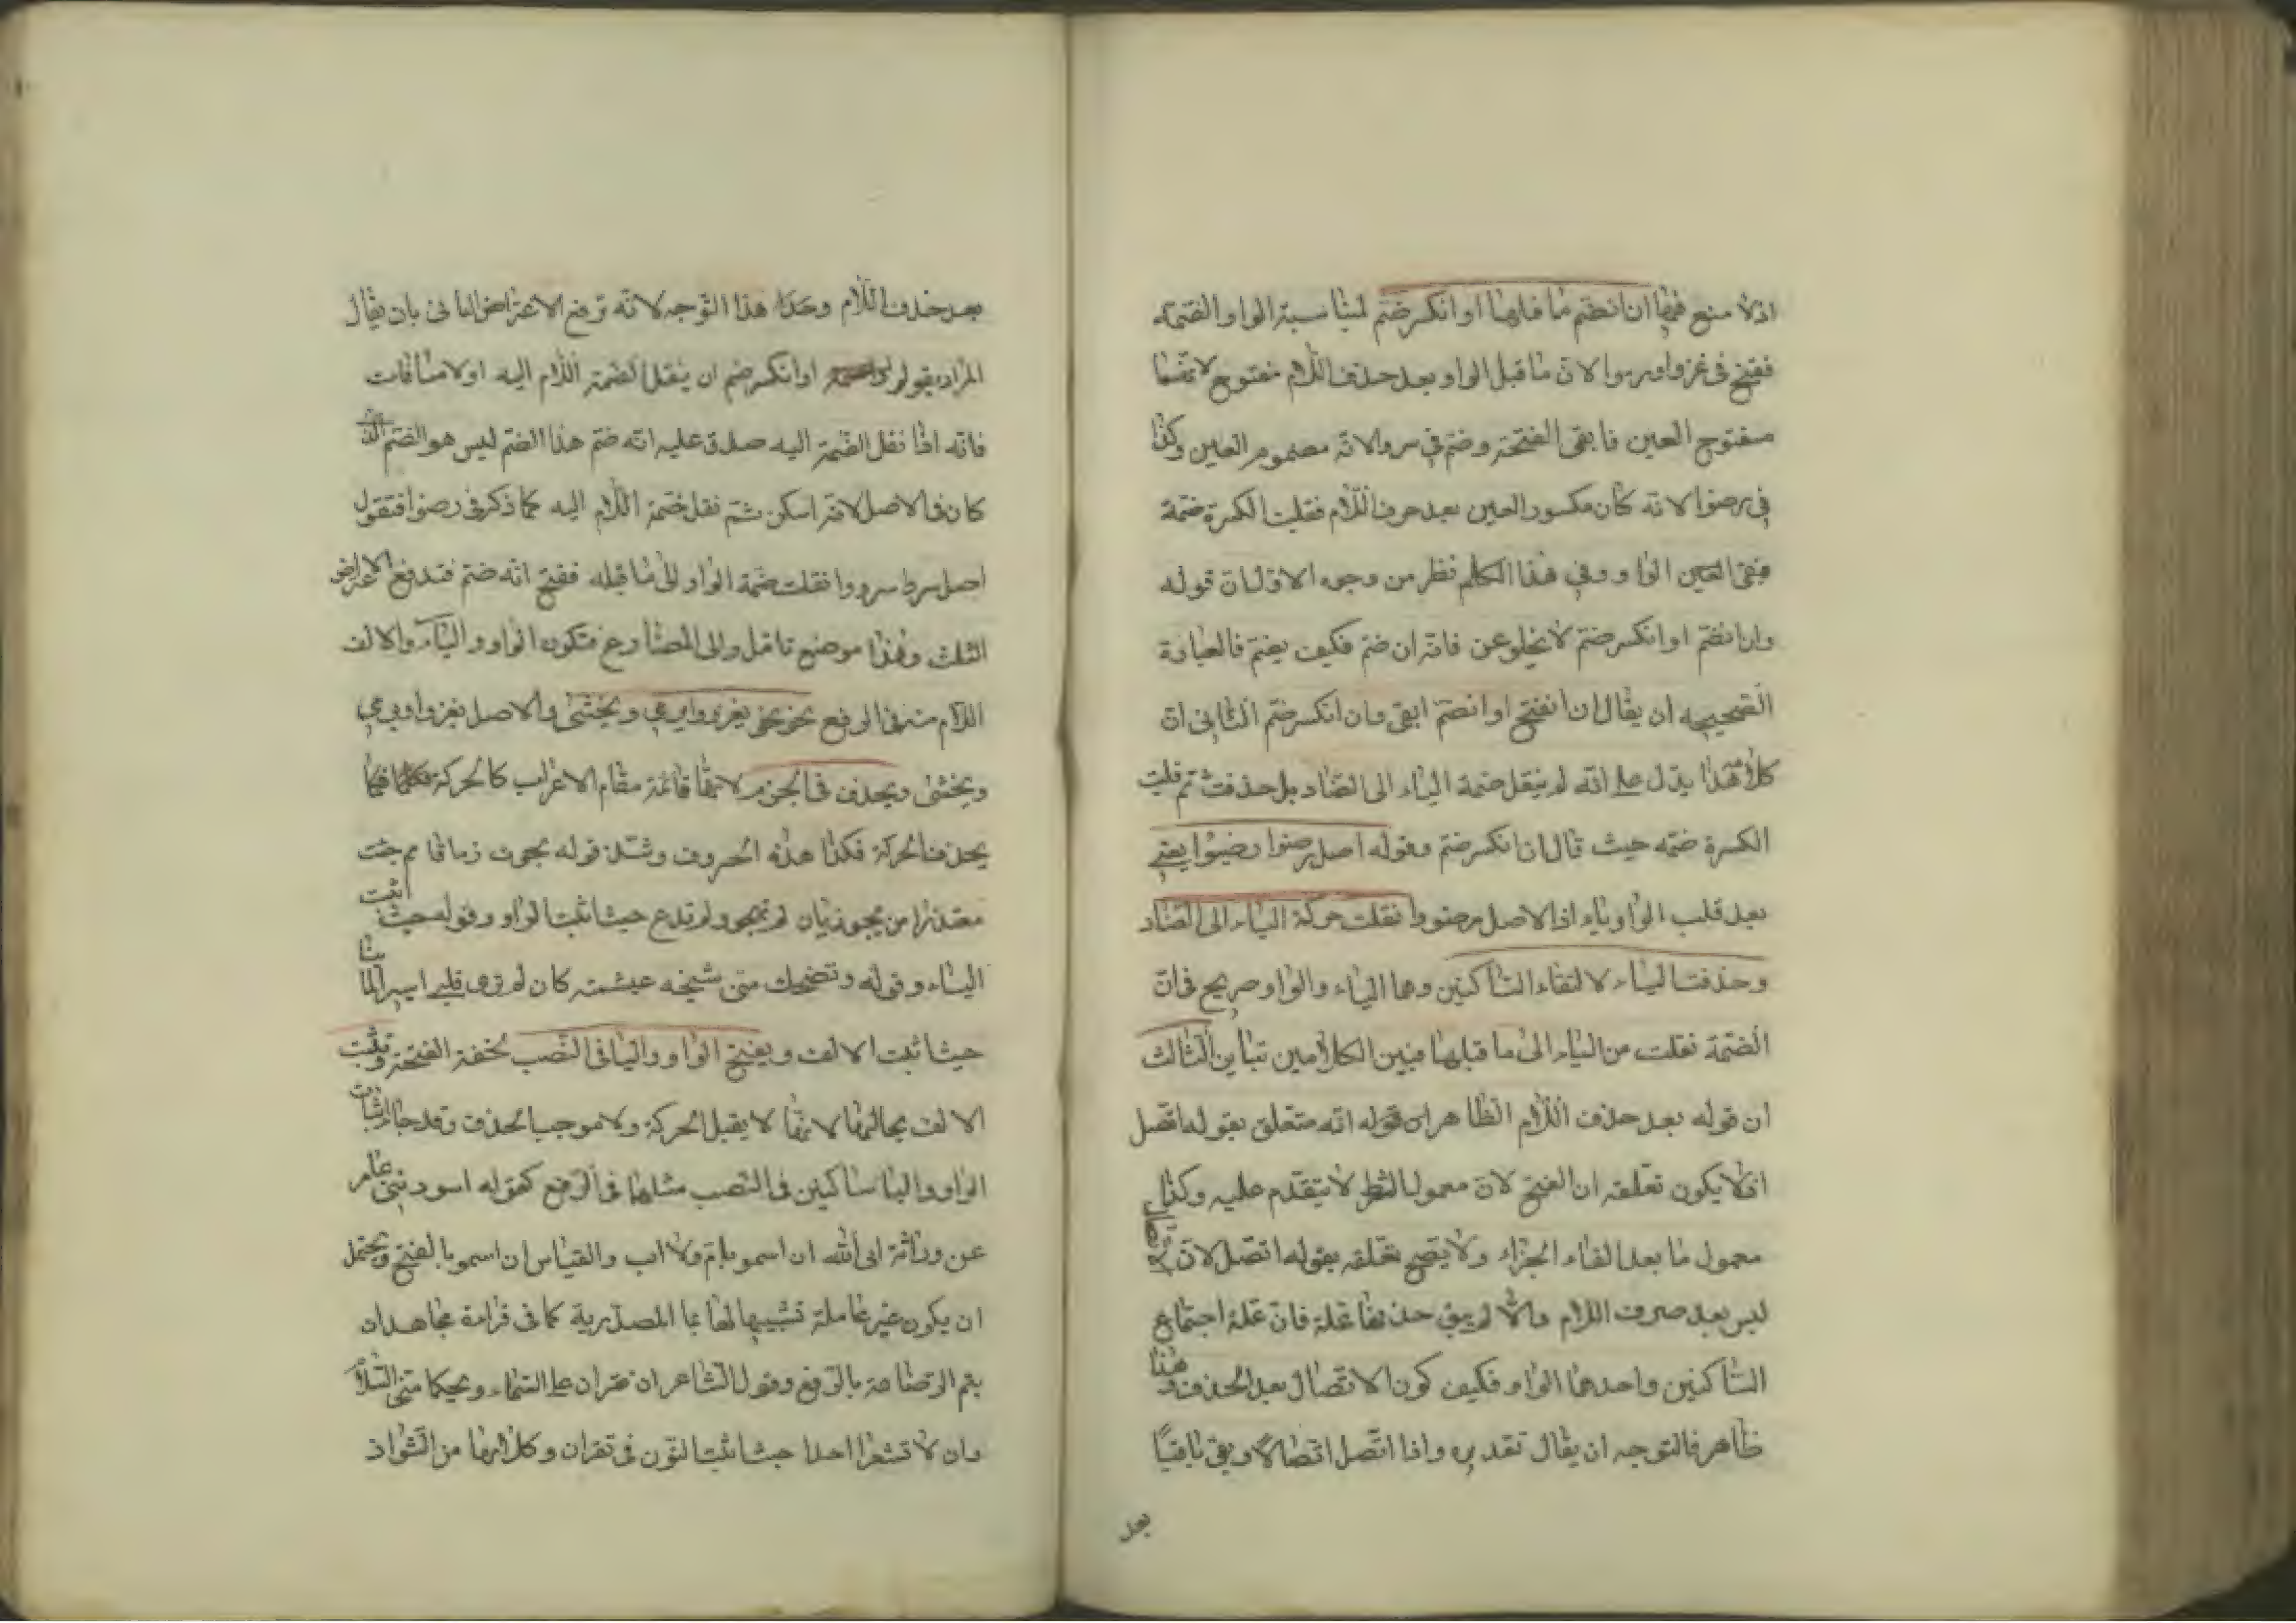 اذلا منع فيها ان انضم ما قبلها او انكسر ضم لمناسبة الواو الضمة
ففتح في غزوا ورموا لان ما قبل الواو بعد حذف اللام مفتوح لانهما
مفتوح العين فابقى الفتحة وضم في سروا لانه مضموم العين وكذا
في رضوا لانه كان مكسور العين بعد حرف اللام فقلبت الكسرة ضمة
الواو وفي هذا الكلام نظر من وجوه الاول ان قوله
وان انضم او انكسر ضم لا يخلو عن فانه ان ضم فكيف يضم فالعبارة
الصحيحة ان يقال ان انفتح او انضم ابقى وان انكسر ضم الثاني ان
كلامه هذا يدل على انه لم ينقل ضمة الياء الى الضاد بل حذفت ثم قلبت
الكسرة ضمة حيث قال ان انكسر ضم وقوله اصل رضوا رضيوا يعني
بعد قلب الواو ياء اذ الاصل رضووا نقلت حركة الياء الى الضاد
وحذفت الياء لالتقاء الساكنين وهما الياء والواو صريح في ان
الضمة نقلت من الياء الى ما قبلها فبين الكلامين تباين الثالث
ان قوله بعد حذف اللام الظاهر ان قوله انه متعلق بقوله اتصل
اذ لا يكون تعلقه ان الفتح لان معمول الشرط لا يتقدم عليه وكذا
معمول ما بعد الفاء الجزاء ولا يصح تعلقه بقوله اتصل لان الاتصال
ليس بعد صرف اللام والا لم يبق حذفها علة فان علة اجتماع
الساكنين واحدهما الواو فكيف كون الاتصال بعد الحذف وهذا
ظاهر فالتوجه ان يقال تقديره واذا اتصل اتصالا وبقى باقيا
بعد
بعد حذف اللام وهذا التوجه لانه ترفع الاعتراض الثاني بان يقال
المراد بقوله او انكسر ضم ان ينقل ضمة اللام اليه اولا منافات
فانه اذا نقل الضمة اليه صدق عليه انه ضم هذا الضم ليس هو الضم الذي
كان في الاصل لانه اسكن ثم نقل ضمة اللام اليه كما ذكر في رضوا فتقول
اصل سروا سرووا نقلت ضمة الواو الى ما قبله ففتح انه ضم فندفع الاعتراض
الثلث وهذا موضع تامل والى المضارع فتكون الواو والياء والالف
اللام منه في الرفع نحو يغزو ويرمي ويخشى والاصل يغزو ويرمي
ويخشى ويحذف في الجزم لانها قائمة مقام الاعراب كالحركة فكما
يحذف الحركة فكذا هذه الحروف وشذ قوله هجوت زبان ثم جئت
معتذرا من هجو زبان لم تهجو ولم تدع حيث اثبت الواو وقوله حيث اثبت
الياء وقوله وتضحك مني شيخة عبشمية كان لم ترى قبلي اسيرا يمانيا
حيث اثبت الالف ويفتح الواو والياء في النصب لخفة الفتحة وتثبت
الالف بحالها لانها لا يقبل الحركة ولا موجب الحذف وقد جاء اثبات
الواو والياء ساكنين في النصب مثلها في الرفع كقوله اسودتني عامر
عن وراثة ابى الله ان اسمو بام ولا اب والقياس ان اسمو بالفتح ويحتمل
ان يكون غير عاملة تشبيها لها بما المصدرية كما في قراءة مجاهد ان
يتم الرضاعة بالرفع وقول الشاعر ان تقران على اسماء ويحكما مني السلام
وان لا تشعرا احدا حيث اثبت النون في تقران وكلاهما من الشواذ